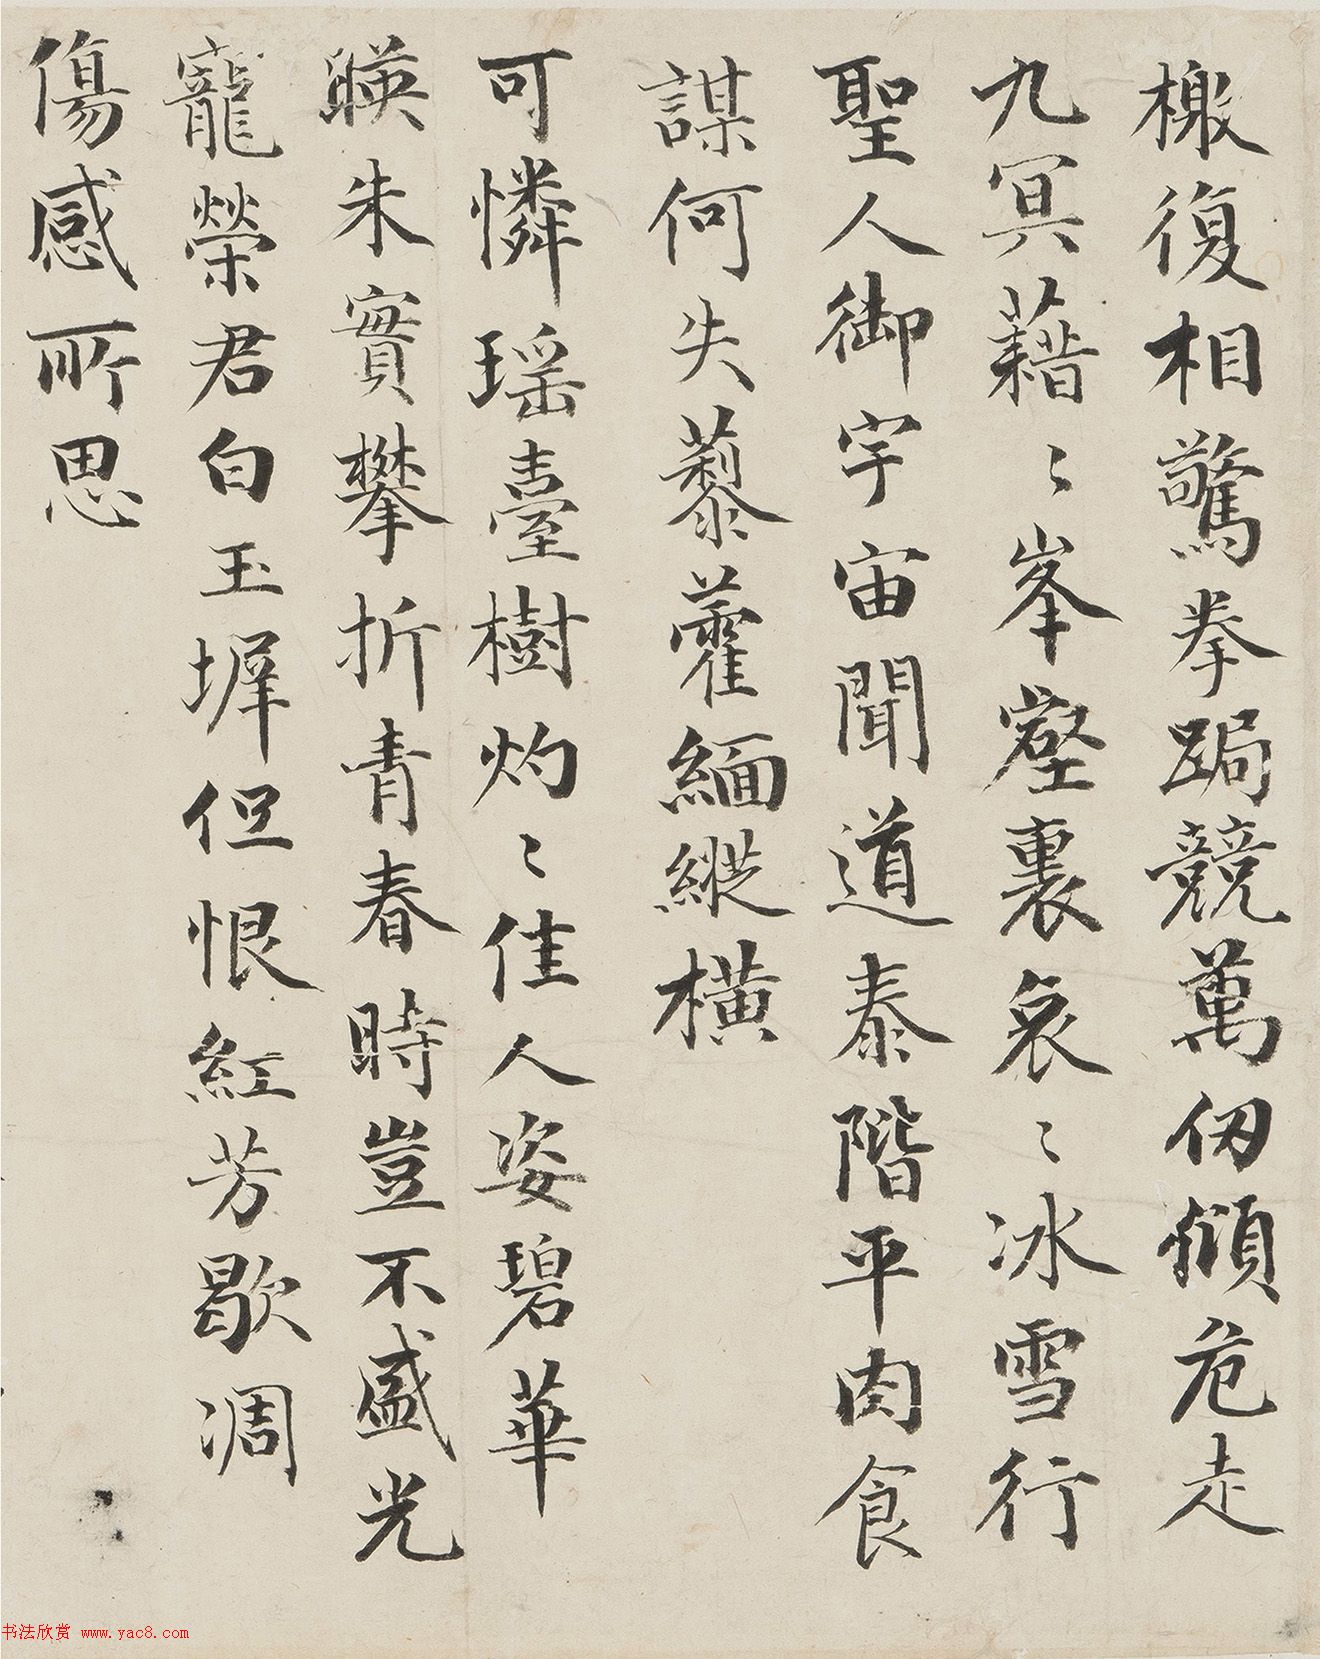 檄復相驚拳跼競萬仞傾危走
九冥藉〻峯壑裏哀〻冰雪行
聖人御宇宙聞道泰階平肉食
謀何失藜藿緬縱橫
可憐瑤臺樹灼〻佳人姿碧華
暎朱實攀折青春時豈不盛光
寵榮君白玉墀但恨紅芳歇凋
傷感所思
书法欣赏 www.yac8.com